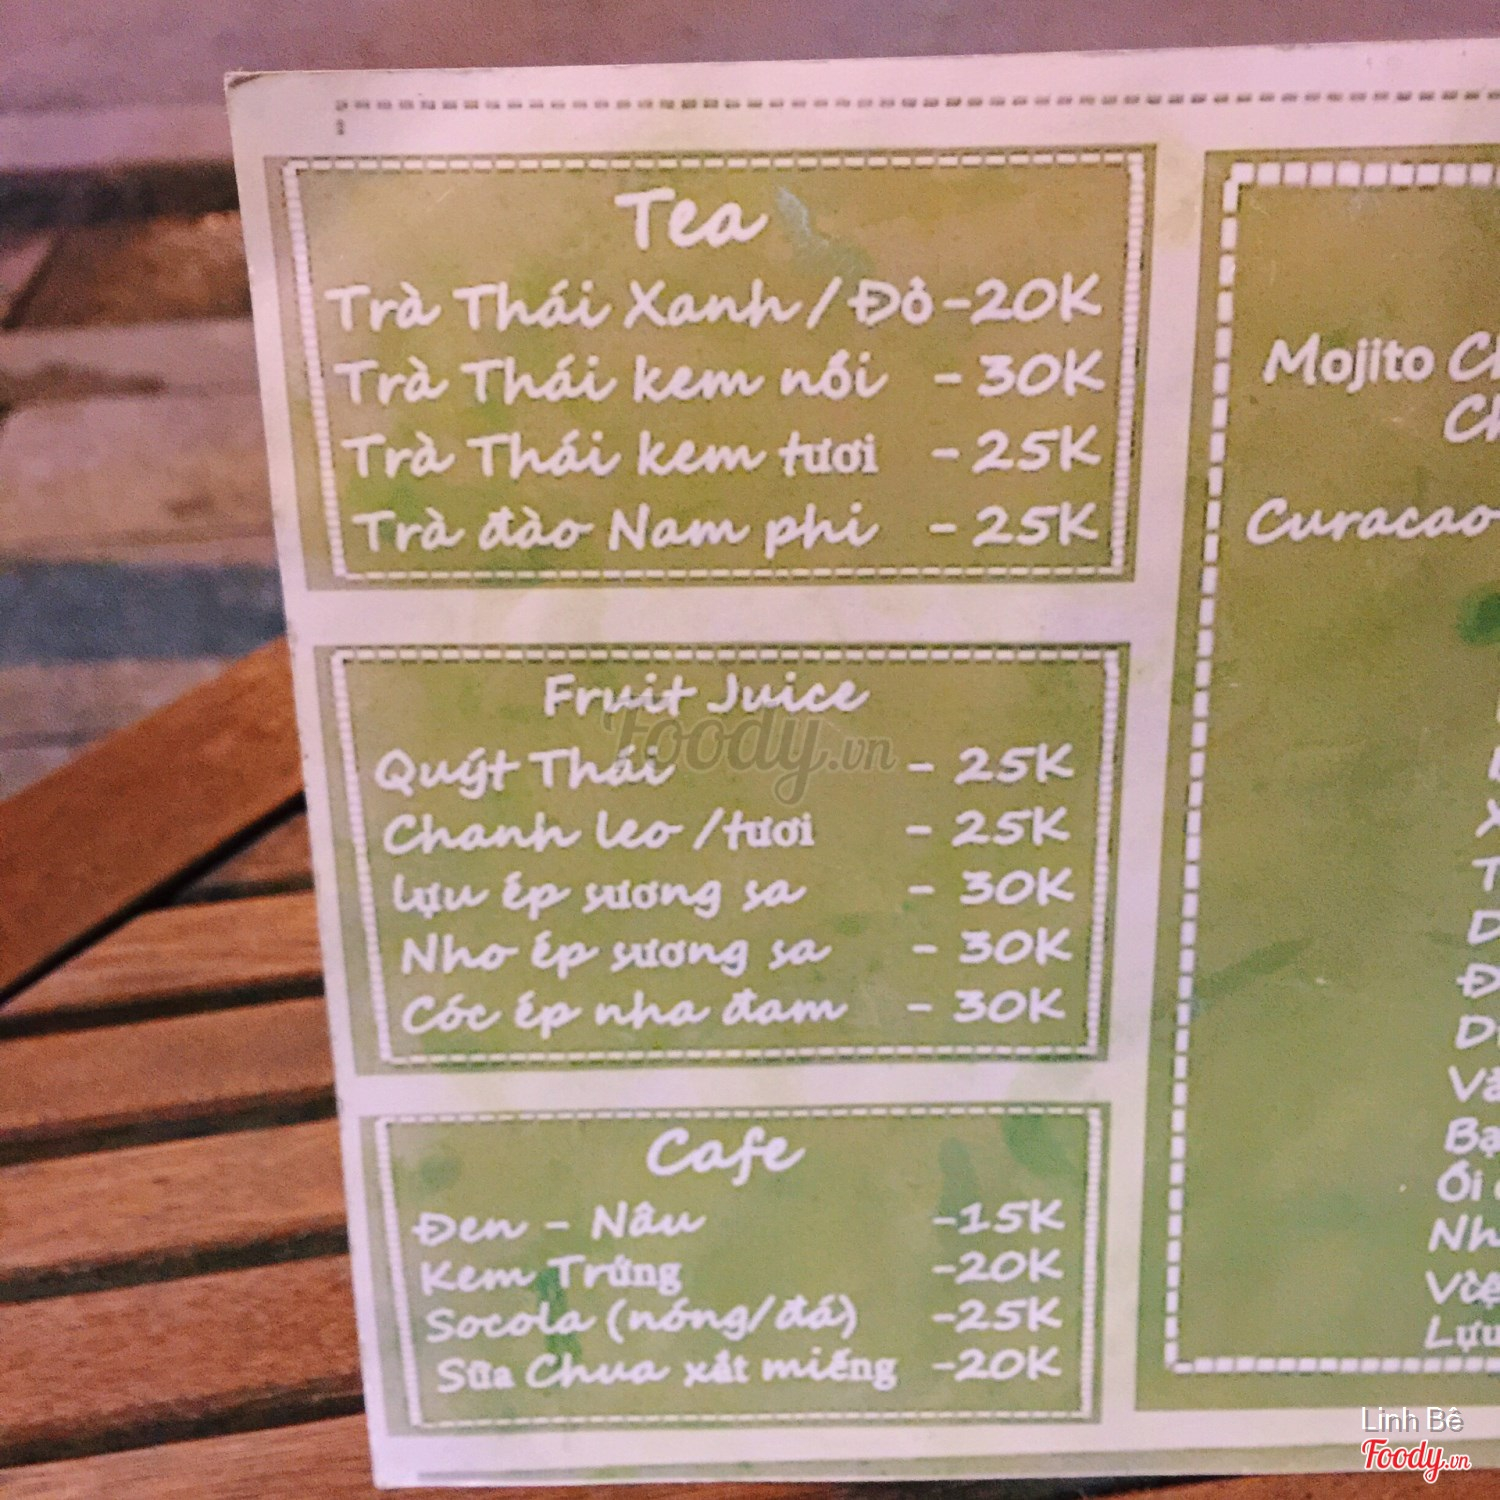 Tea
Trà Thái Xanh / Đỏ -20K
Trà Thái kem nổi - 30K
Trà Thái kem tươi - 25K
Trà đào Nam phi - 25K
Fruit Juice
Quýt Thái - 25K
Chanh leo / tươi - 25K
lựu ép sương sa - 30K
Nho ép sương sa - 30K
Cóc ép nha đam - 30K
Cafe
Đen - Nâu -15K
Kem Trứng -20K
Socola (nóng/đá) -25K
Sữa Chua xắt miếng -20K
Mojito
Curacao
Ổi
Lựu
Foody.vn
Linh Bê
Foody.vn